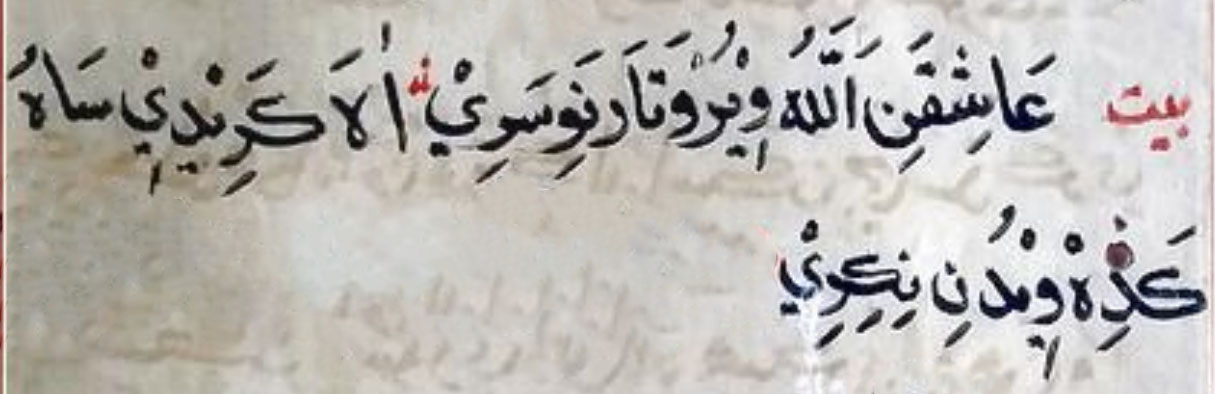 بيت عَاشِقَنِ اَللّٰهُ وٕيْرُوْتَارَنِوسَرِيْ اُلَا كَرِنْدٕيْ سَاهُ
كَذِهْ وٕنْدُنِ نِكِرِيْ